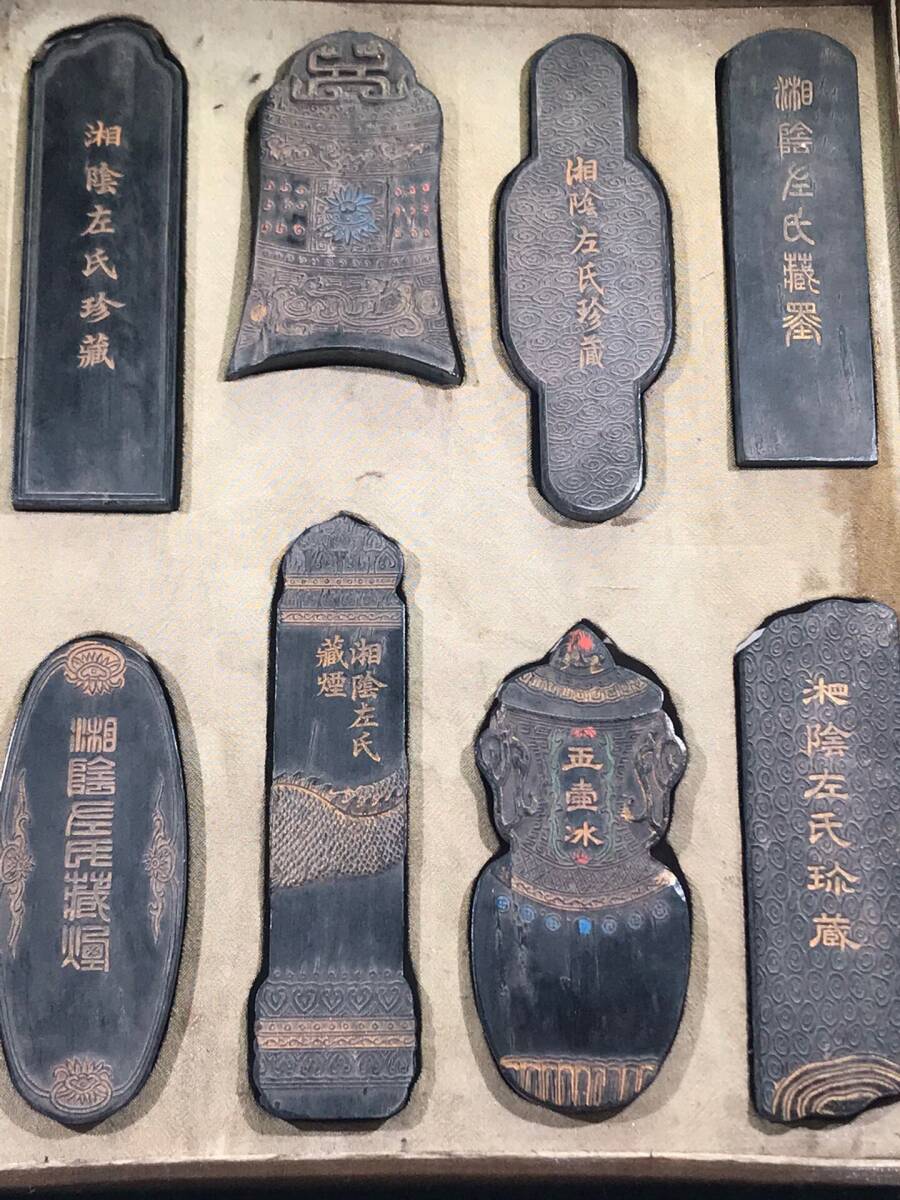 湘陰左氏珍藏
湘陰左氏珍藏
湘陰左氏藏墨
湘陰左氏藏煙
湘陰左氏
藏煙
玉壺冰
湘陰左氏珍藏